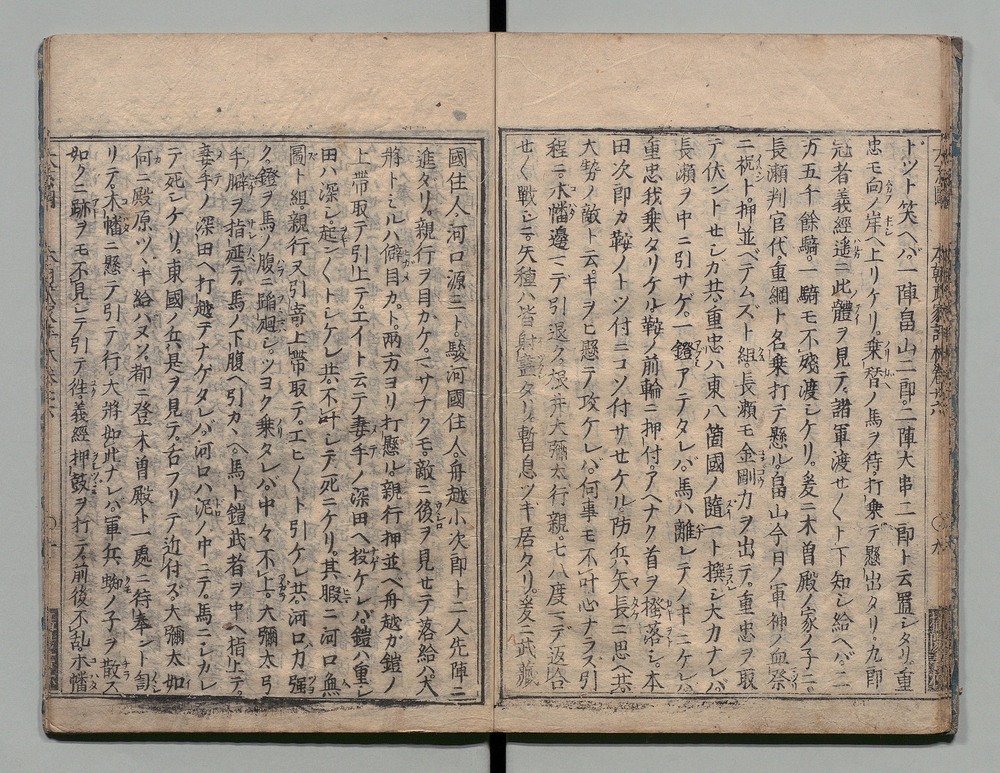 トツト笑ヘバ一陣畠山二郎二陣大串二郎ト云置シタリ重
忠モ向ノ岸ヘ上リケリ乗替ノ馬ヲ待打乗デ懸出タリ九郎
冠者義經遙ニ此體ヲ見テ諸軍渡セ〳〵ト下知シ給ヘバ二
万五千餘騎一騎モ不殘渡シケリ爰ニ木曽殿ノ家ノ子ニ
長瀬判官代重綱ト名乗打テ懸ル畠山今日ノ軍神ノ血祭
ニ祝ト押並ベテムズト組長瀬モ金剛力ヲ出テ重忠ヲ取
テ伏ントセシガ共重忠ハ東八箇國ノ隨一ト撰シ大力ナレバ
長瀬ヲ中ニ引サゲ一鐙アテタレバ馬ハ離レテノキニケレバ
重忠我乗タリケル鞍ノ前輪ニ押付アヘナク首ヲ捻落シ本
田次郎カ鞍ノトツ付ニコソ付サセケル防兵矢長ニ思ヘ共
大勢ノ敵ト云ギヲヒ懸テ攻ケレバ何事モ不叶心ナラズ引
程ニ木幡邊ニテ引退ク根井大彌太行親七八度マデ返合
セ〳〵戰シニ矢種ハ皆射盡タリ暫息ツギ居タリ爰ニ武藏
國住人河口源三ト駿河國住人舟越小次郎ト二人先陣ニ
進ダリ親行ヲ目カケマサナクモ敵ニ後ヲ見セテ落給ハ大
將トミルハ僻目カト兩方ヨリ打懸ル親行押並ヘ舟越ガ鎧ノ
上帶取テ引上テエイト云テ妻手ノ深田ヘ投ケレバ鎧ハ重シ
田ハ深シ起ン〳〵トシケレ共不叶シテ死ニケリ其暇ニ河口無
圖ト組親行又引寄上帶取テエヒ〳〵ト引ケレ共河口力強
ク鐙ヲ馬ノ腹ニ踏廻シツヨク乗タレバ中々不上大彌太弓
手ノ腕ヲ指延テ馬ノ下腹ヘ引カヽヘ馬ト鎧武者ヲ中ヘ指上テ
妻手ノ深田ヘ打越テナゲタレバ河口ハ泥ノ中ニテ馬ニシカレ
テ死シケリ東國ノ兵是ヲ見テ舌フリテ近付ズ大彌太如
何ニ殿原ツヾキ給ハヌソ都ニ登木曽殿ト一處ニ待奉ント訇
リテ木幡ニ懸テ引テ行大將如此ナレバ軍兵蜘ノ子ヲ散ス
如クニ跡ヲモ不見シテ引テ徃義經押鼓ヲ打テ前後不亂木幡